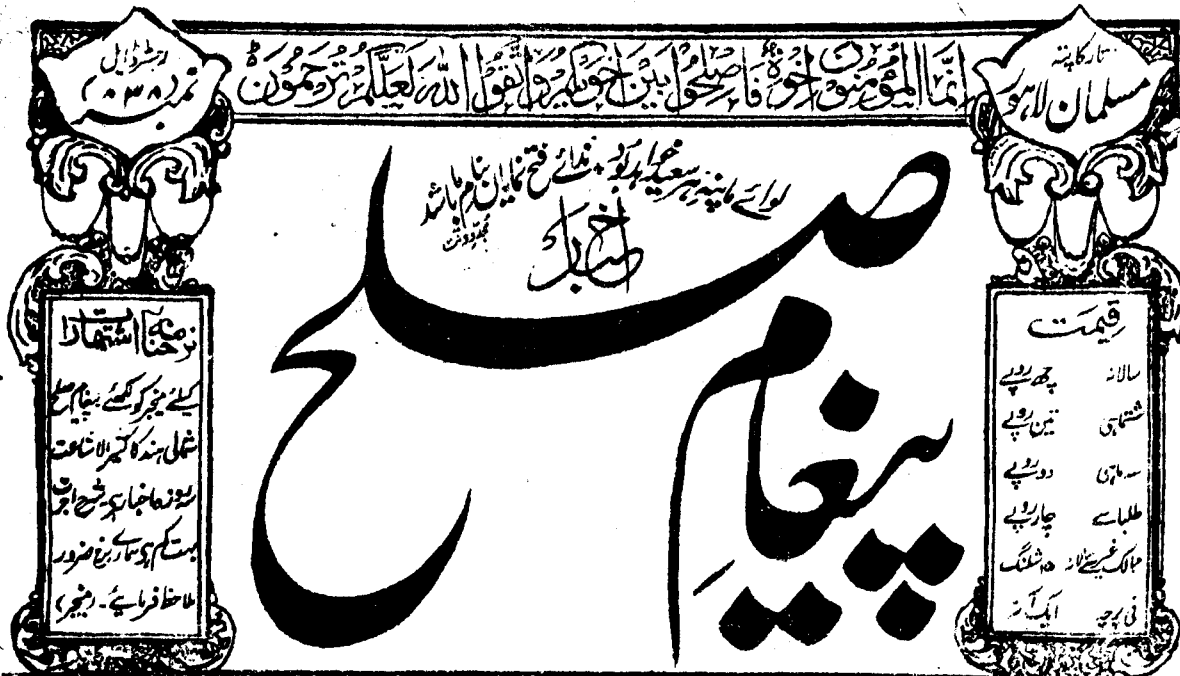 تار کا پتہ
مسلمان لاہور
انما المؤمنون اخوة فاصلحوا بین اخویکم واتقوا الله لعلکم ترحمون
رجسٹرڈ ایل
نمبر (۸۳۸)
لوائے ما پنہ ہر سعید خواہد بود ندائے فتح نمایاں بنام ما باشد
اخبار
پیغام صلح
قیمت
سالانہ چھ روپے
ششماہی تین روپے
سہ ماہی دو روپے
طلبا سے چار روپے
ممالک غیر سے سالانہ ۱۵ شلنگ
فی پرچہ ایک آنہ
نرخنامہ اشتہارات
کیلئے منیجر کو لکھئے پیغام صلح
شمالی ہند کا کثیر الاشاعت
سہ روزہ اخبار ہے شرح اجرت
بہت کم ہے ہمارے نرخ ضرور
ملاحظہ فرمائیے۔ (منیجر)